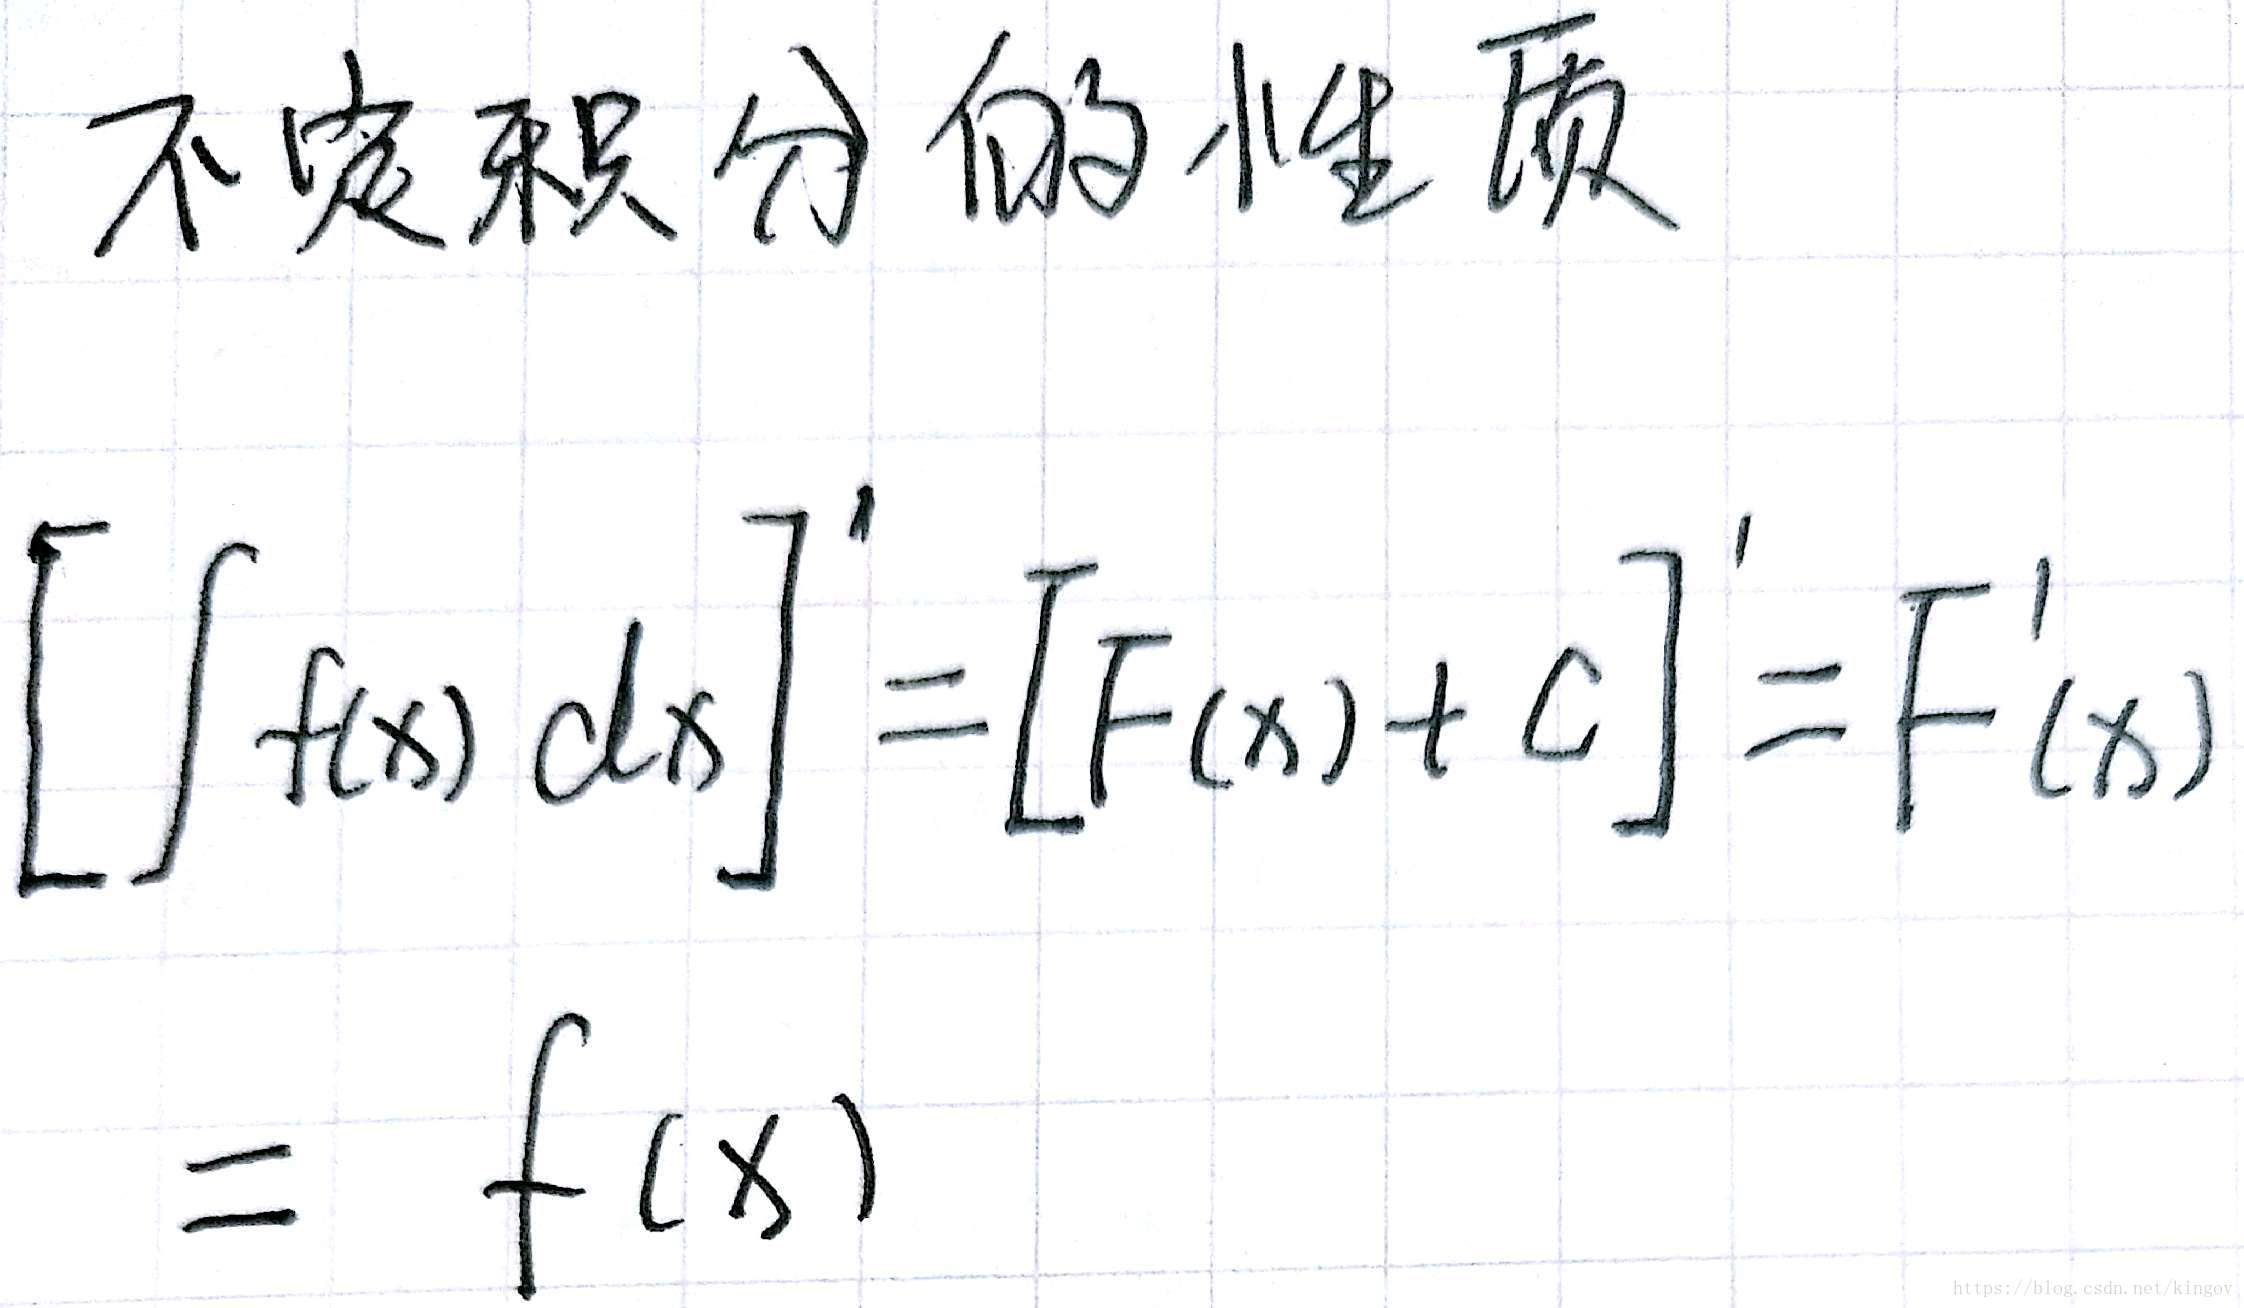 不定积分的性质
[∫f(x)dx]' = [F(x)+C]' = F'(x)
= f(x)
https://blog.csdn.net/kingov